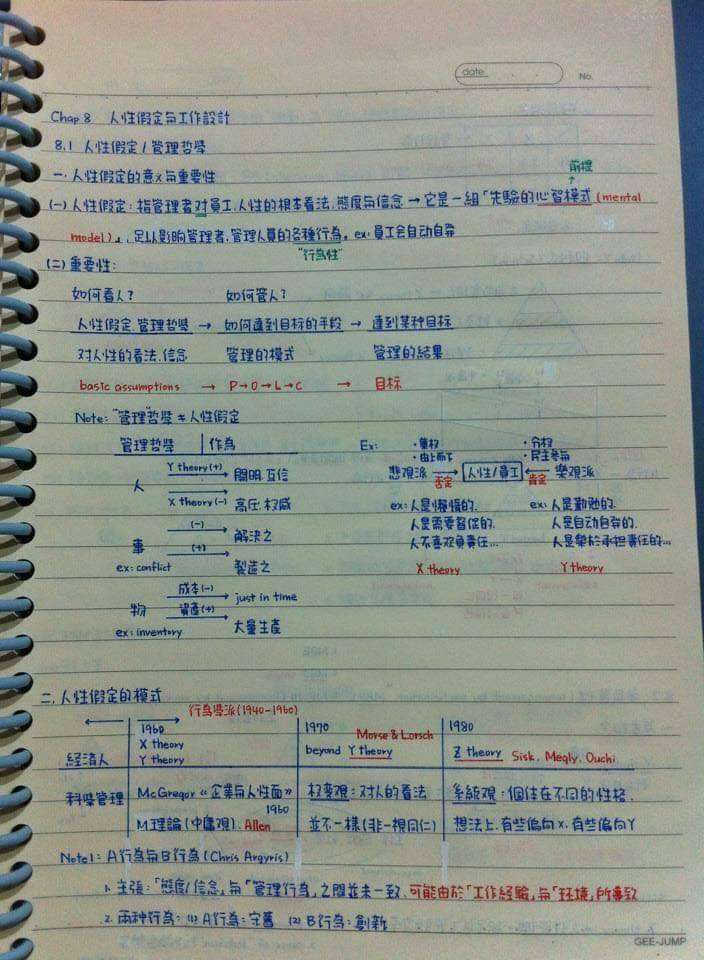 date
No.
Chap 8 人性假定與工作設計
8.1 人性假定/管理哲學
一. 人性假定的意義與重要性
前提
↑
(一) 人性假定：指管理者对員工、人性的根本看法、態度與信念 → 它是一組「先驗的心智模式 (mental
model)」，足以影响管理者、管理人員的各種行為。ex: 員工会自动自發
"行為性"
(二) 重要性：
如何看人？ 如何管人？
人性假定、管理哲學 → 如何達到目标的手段 → 達到某种目标
对人性的看法、信念 管理的模式 管理的結果
basic assumptions → P→O→L→C → 目标
Note: "管理"哲學 ≠ 人性假定
管理哲學 作為 Ex: ·集权 ·分权
·由上而下 ·民主參與
人 Y theory (+) 開明、互信 悲观派 → 否定 人性/員工 ← 肯定 樂观派
X theory (-) 高压、权威 ex: 人是懶惰的. ex: 人是勤勉的.
(-) 解決之 人是需要督促的. 人是自动自發的.
事 (+) 人不喜欢負責任... 人是樂於承担責任的...
ex: conflict 製造之 X theory Y theory
成本(-) just in time
物 資產(+)
ex: inventory 大量生產
二. 人性假定的模式
← 行為學派 (1940-1960) →
1960 1970 Morse & Lorsch 1980
X theory beyond Y theory Z theory Sisk, Megly, Ouchi
經濟人 Y theory
科學管理 McGregor 《企業的人性面》 权变观：对人的看法 系統观：個体在不同的性格.
1960
M理論 (中庸观). Allen 並不一樣(非一視同仁) 想法上. 有些偏向X. 有些偏向Y
Note1: A行為與B行為 (Chris Argyris)
1. 主張：「態度/信念」與「管理行為」之間並未一致、可能由於「工作經驗」與「环境」所導致
2. 兩种行為：(1) A行為：守舊 (2) B行為：創新
GEE-JUMP